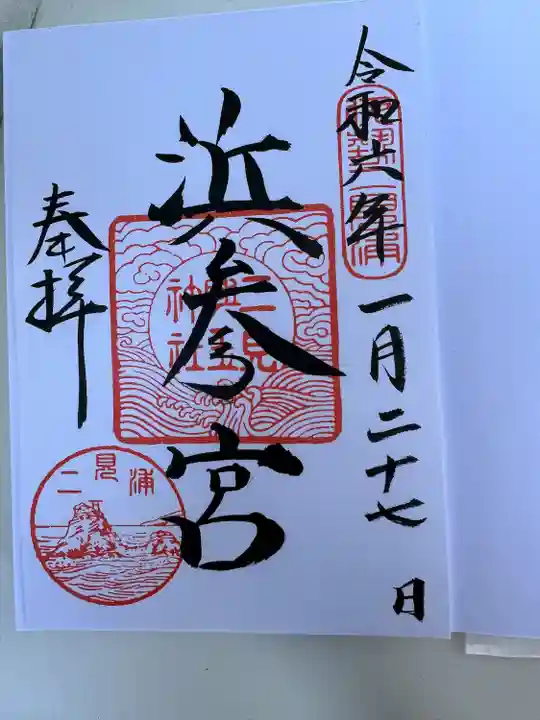 令和六年一月二十七日
伊勢二見浦
浜参宮
二見興玉神社
奉拝
二見浦